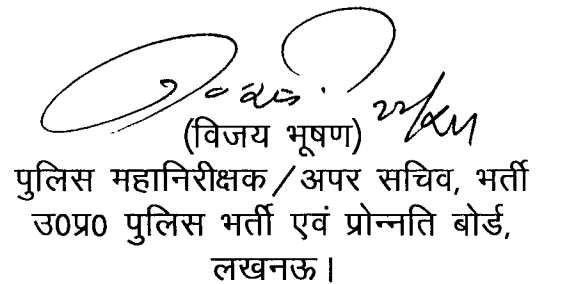 (विजय भूषण)
पुलिस महानिरीक्षक/अपर सचिव, भर्ती
उ0प्र0 पुलिस भर्ती एवं प्रोन्नति बोर्ड,
लखनऊ।